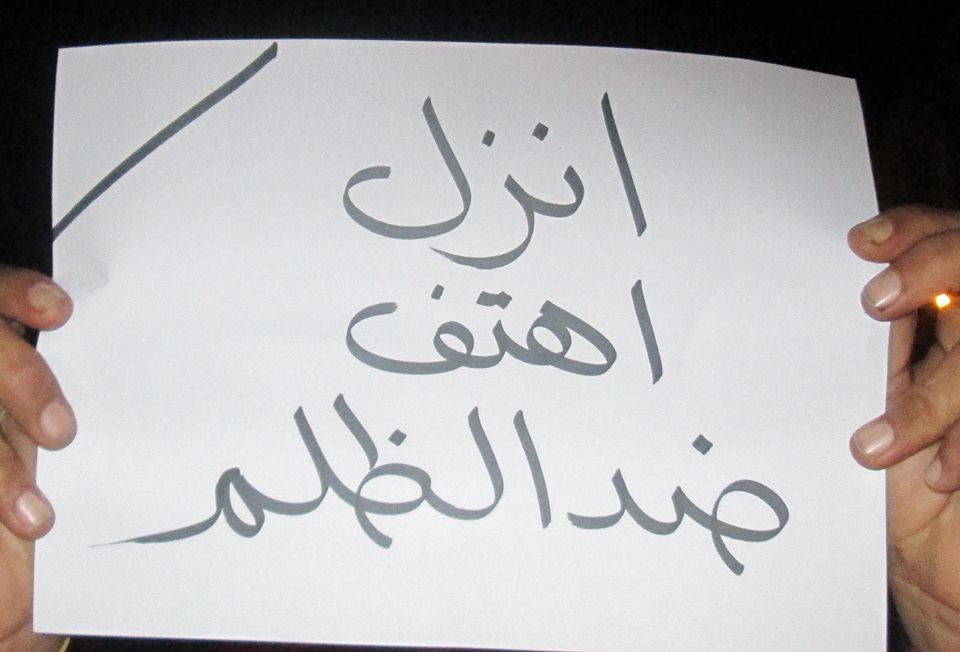 انزل
اهتف
ضد الظلم